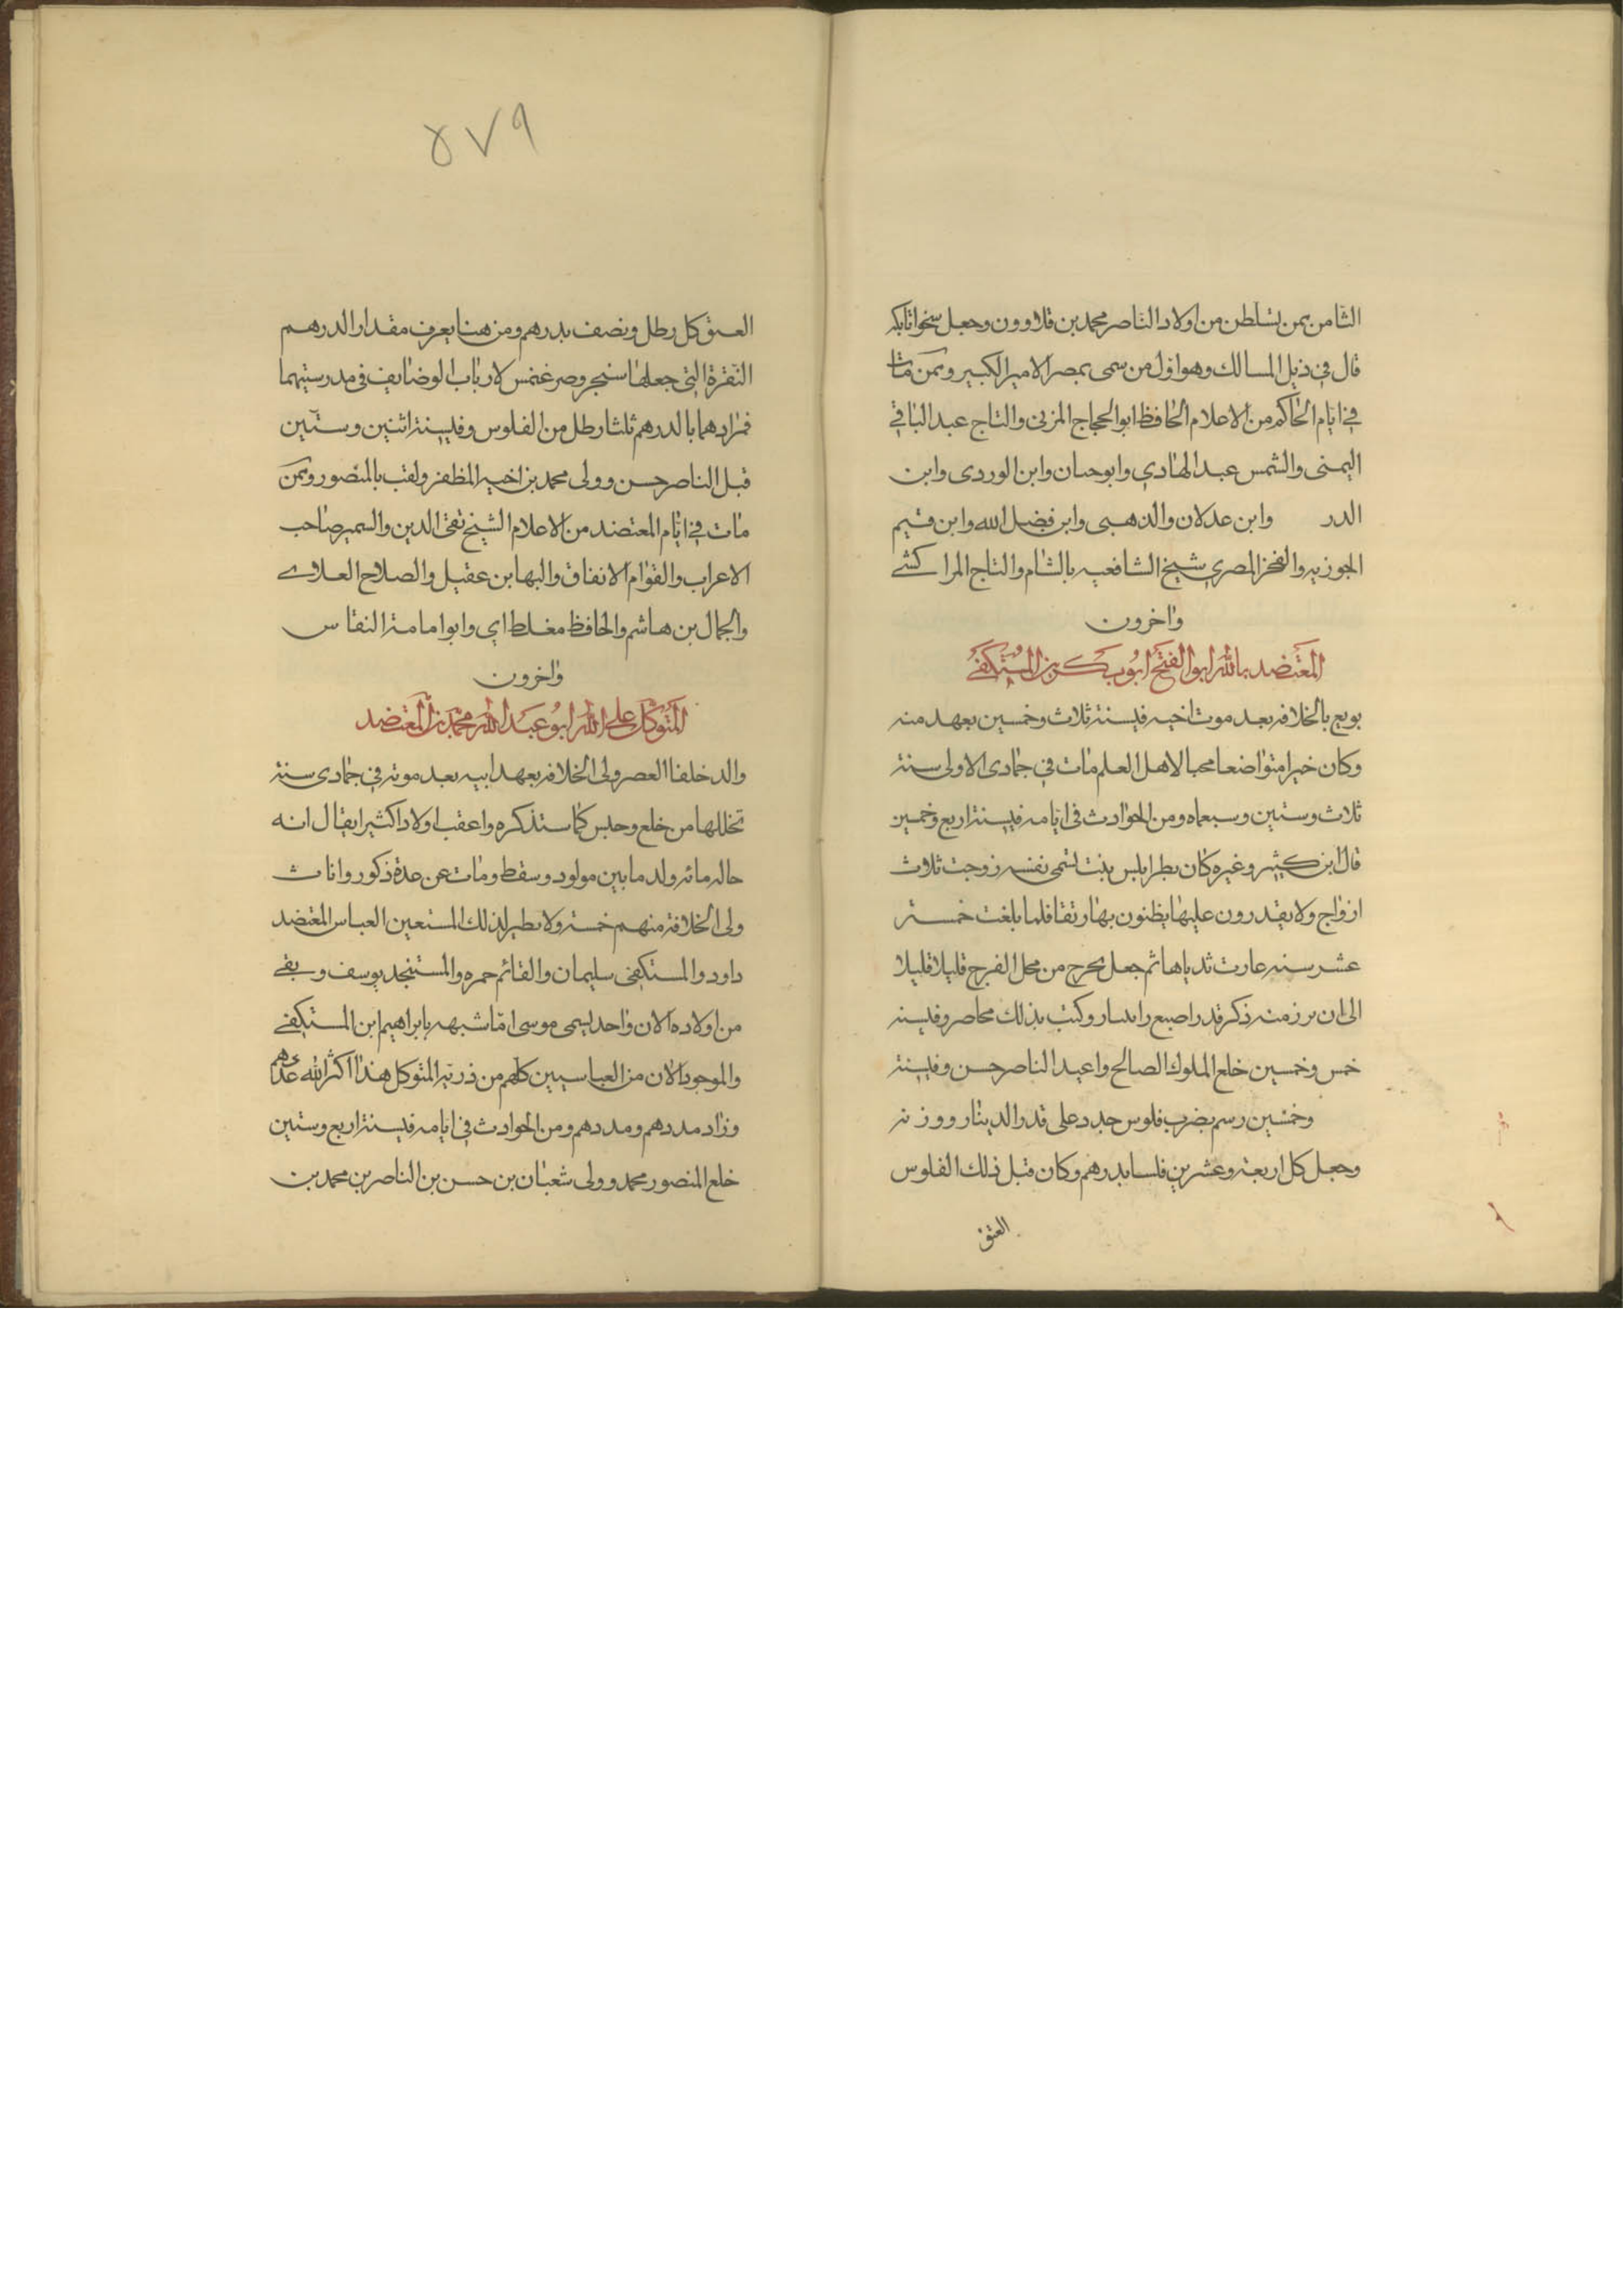 الثامن ممن تسلطن من اولاد الناصر محمد بن قلاوون وجعل شيخو اتابكه
قال في ذيل المسالك وهو اول من سمى بمصر الامير الكبير وممن مات
في ايام الحاكم من الاعلام الحافظ ابو الحجاج المزني والتاج عبد الباقي
اليمنى والشمس عبد الهادي وابو حيان وابن الوردى وابن
الدر وابن عدلان والذهبى وابن فضل الله وابن قيم
الجوزيه والفخر المصري شيخ الشافعيه بالشام والتاج المراكشے
واخرون
المعتضد بالله ابو الفتح ابوبكر بن المستكفے
بويع بالخلافه بعد موت اخيه في سنة ثلاث وخمسين بعهد منه
وكان خيرا متواضعا محبا لاهل العلم مات في جمادى الاولى سنة
ثلاث وستين وسبعماه ومن الحوادث في ايامه في سنة اربع وخمسين
قال ابن كثير وغيره كان بطرابلس بنت تسمى نفسه زوجت ثلاث
ازواج ولا يقدرون عليها يظنون بها رتقا فلما بلغت خمسة
عشر سنه غارت ثدياها ثم جعل يخرج من محل الفرج قليلا قليلا
الى ان برز منه ذكر قدر اصبع وكتب بذلك محاضر وفي سنه
خمس وخمسين خلع الملوك الصالح واعيد الناصر حسن وفي سنة
وخمسين رسم بضرب فلوس جدد على قدر الدينار ووزنه
وجعل كل اربعة وعشرين فلسا بدرهم وكان قبل ذلك الفلوس
العتق
٥٧٩
العتق كل رطل ونصف بدرهم ومن هنا يعرف مقدار الدرهم
النقرة التي جعلها سنجر وصرغتمس لارباب الوضايف في مدرستيهما
فمرادهما بالدرهم ثلثا رطل من الفلوس وفي سنة اثنين وستين
قبل الناصر حسن وولى محمد بن اخيه المظفر ولقب بالمنصور وممن
مات في ايام المعتضد من الاعلام الشيخ تقى الدين والسمير صاحب
الاعراب والقوام الانفاق والبها بن عقيل والصلاح العلاوے
والجمال بن هاشم والحافظ مغلطاي وابو امامة النقاس
واخرون
المتوكل على الله ابو عبد الله محمد بن المعتضد
والد خلفا العصر ولى الخلافه بعهد ابيه بعد موته في جمادى سنة
تخللها من خلع وحبس كما ستذكره واعقب اولادا كثيرا يقال انه
حاله مائه ولد ما بين مولود وسقط ومات عن عدة ذكور واناث
ولى الخلافة منهم خمسة ولا نظير لذلك المستعين العباس المعتضد
داود والمستكفى سليمان والقائم حمزه والمستنجد يوسف وبقے
من اولاده الان واحد يسمى موسى اما شبهه بابراهيم ابن المستكفے
والموجود الان من العباسيين كلهم من ذرية المتوكل هذا اكثر الله عددهم
وزاد مددهم ومددهم ومن الحوادث في ايامه في سنة اربع وستين
خلع المنصور محمد وولى شعبان بن حسن بن الناصر بن محمد بن